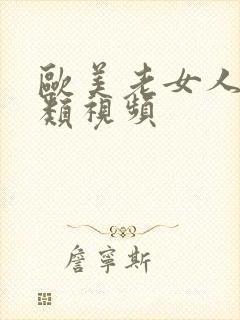 歐美老女人
類視頻
詹寧斯